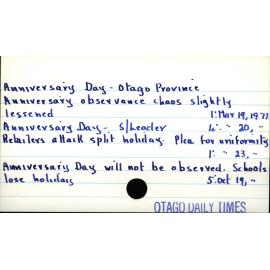 Anniversary Day - Otago Province
Anniversary observance chaos slightly
lessened 1: Mar 19, 1971
Anniversary Day - S/Leader 4: " 20, "
Retailers attack split holiday. Plea for uniformity
1: " 23, "
Anniversary Day will not be observed. Schools
lose holiday 5: Oct 19, "
OTAGO DAILY TIMES